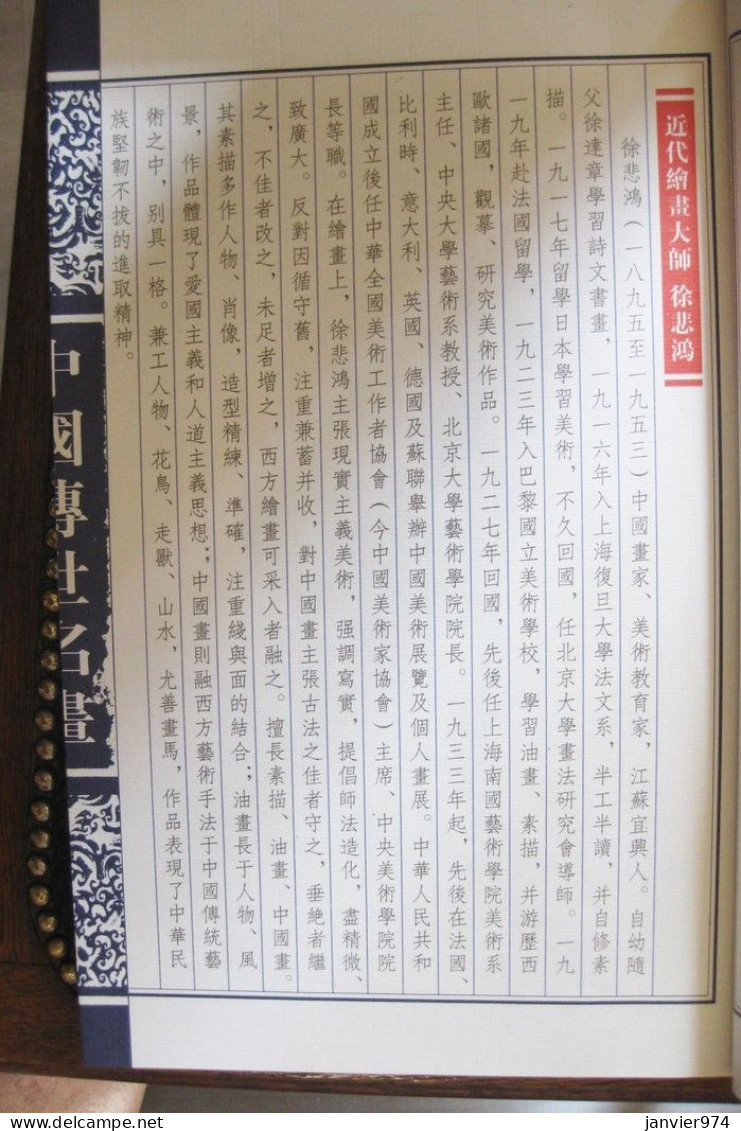 近代繪畫大師 徐悲鴻
徐悲鴻(一八九五至一九五三)中國畫家、美術教育家,江蘇宜興人。自幼隨
父徐達章學習詩文書畫,一九一六年入上海復旦大學法文系,半工半讀,并自修素
描。一九一七年留學日本學習美術,不久回國,任北京大學畫法研究會導師。一九
一九年赴法國留學,一九二三年入巴黎國立美術學校,學習油畫、素描,并游歷西
歐諸國,觀摹、研究美術作品。一九二七年回國,先後任上海南國藝術學院美術系
主任、中央大學藝術系教授、北京大學藝術學院院長。一九三三年起,先後在法國、
比利時、意大利、英國、德國及蘇聯舉辦中國美術展覽及個人畫展。中華人民共和
國成立後任中華全國美術工作者協會(今中國美術家協會)主席、中央美術學院院
長等職。在繪畫上,徐悲鴻主張現實主義美術,强調寫實,提倡師法造化,盡精微、
致廣大。反對因循守舊,注重兼蓄并收,對中國畫主張古法之佳者守之,垂绝者繼
之,不佳者改之,未足者增之,西方繪畫可采入者融之。擅長素描、油畫、中國畫。
其素描多作人物、肖像,造型精練、準確,注重綫與面的結合;油畫長于人物、風
景,作品體現了愛國主義和人道主義思想;中國畫則融西方藝術手法于中國傳統藝
術之中,别具一格。兼工人物、花鳥、走獸、山水,尤善畫馬,作品表現了中華民
族堅韌不拔的進取精神。
中國傳世名畫
janvier974